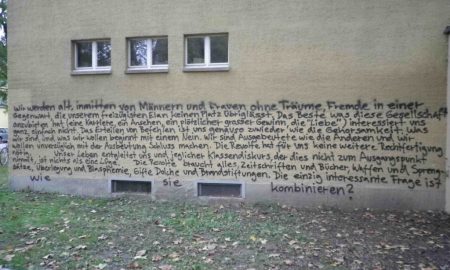 Wir werden alt, inmitten von Männern und Frauen ohne Träume, Fremde in einer
Gegenwart, die unserem freizügigsten Elan keinen Platz übriglässt. Das Beste was diese Gesellschaft
anzubieten hat (eine Karriere, ein Ansehen, ein plötzlicher grosser Gewinn, die "Liebe") interessiert uns
ganz einfach nicht. Das Erteilen von Befehlen ist uns genauso zuwieder wie die Gehorsamkeit. Was
Wir sind und was wir wollen beginnt mit einem Nein. Wir sind Ausgebeutete wie die Anderen und wir
wollen unverzüglich mit der Ausbeutung Schluss machen. Die Revolte hat für uns keine weitere Rechtfertigung
nötig. Unser Leben entgleitet uns und jeglicher Klassendiskurs der dies nicht zum Ausgangspunkt
nimmt, ist nichts als eine Lüge. Die Revolte braucht alles, Zeitschriften und Bücher, Waffen und Spreng-
sätze, Überlegung und Blasphemie, Gifte Dolche und Brandstiftungen. Die einzig interessante Frage ist
wie sie kombinieren?